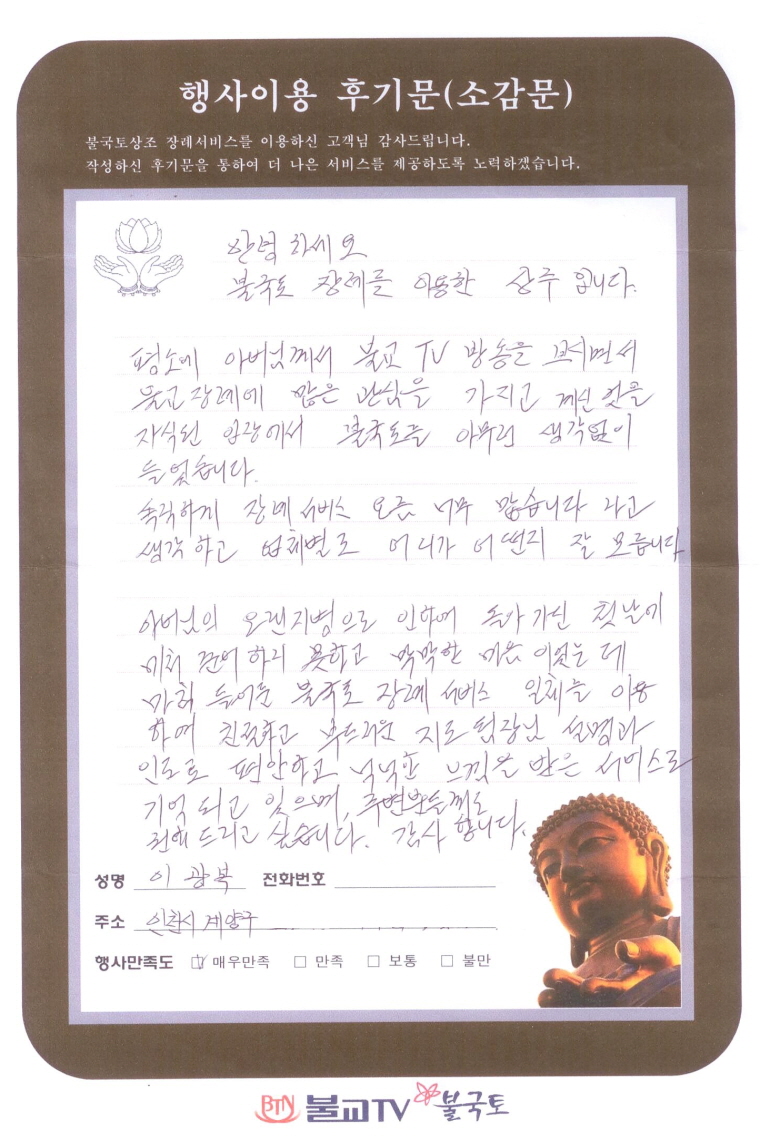 행사이용 후기문(소감문)
불국토상조 장례서비스를 이용하신 고객님 감사드립니다.
작성하신 후기문을 통하여 더 나은 서비스를 제공하도록 노력하겠습니다.
안녕하세요
불국토 장례를 이용한 상주 입니다.
평소에 아버님께서 불교 TV 방송을 보시면서
불교장례에 많은 관심을 가지고 계신 것을
자식된 입장에서 불국토를 아무런 생각없이
들었습니다.
솔직하게 장례 서비스 요즘 너무 많습니다 라고
생각하고 업체별로 어디가 어떤지 잘 모릅니다
아버님의 오랜지병으로 인하여 돌아가신 첫날에
미처 준비하지 못하고 막막한 마음 이었는데
마침 들어둔 불국토 장례 서비스 일체를 이용
하여 친절하고 부드러운 지도팀장님 설명과
인도로 편안하고 넉넉한 느낌을 받은 서비스로
기억 되고 있으며, 주변분들께도
전해 드리고 싶습니다. 감사 합니다.
성명 이광복 전화번호
주소 인천시 계양구
행사만족도 ☑ 매우만족 □ 만족 □ 보통 □ 불만
BTN 불교TV 불국토